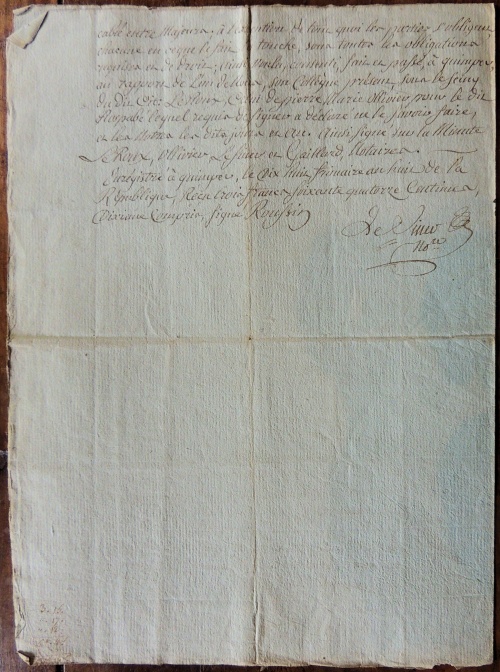 cable entre Majeurs, à l'exécution de tout quoi les parties s'obligent
chacune en ce que le fait touche, sous toutes les obligations
requises et de droit; ainsi voulu, consenti, fait et passé, à quimper,
au rapport de L'un de Nous, son Collègue présent, sous le seing
du Dit Cit. et de pierre Marie Ollivier pour le dit
lequel requis de signer a déclaré ne le savoir faire,
et les Nôtres les dits jour et an. Ainsi signé sur la Minute
Le Roux, Ollivier, Le Siner et Gaillard, Notaires.
Enregistré à quimper, le dix huit frimaire an huit de la
République, Reçu trois francs soixante quatorze Centimes,
Dixième Compris, signé Roussin
Le Siner
No.re